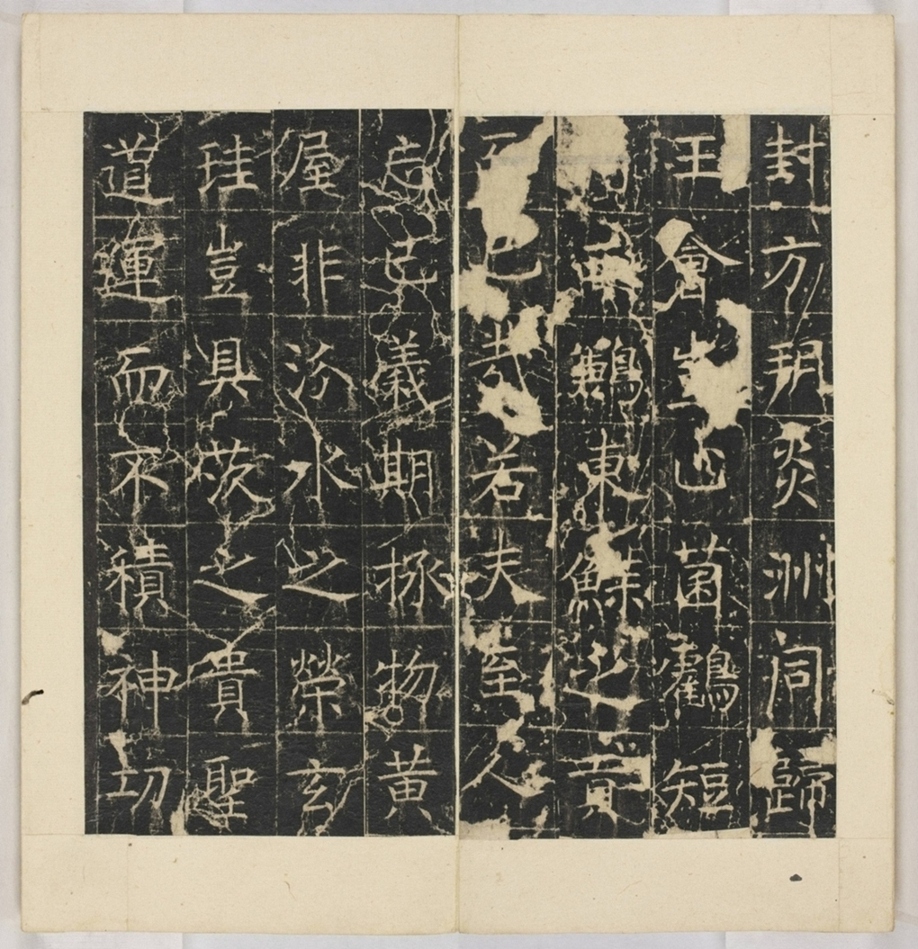 封方朔炎洲同歸
王會豈止菌鶴短
狗西鶼東鰈之貢
而已哉若夫至人
忘己義期拯物黃
屋非汾水之榮玄
珪豈具茨之貴聖
道運而不積神功